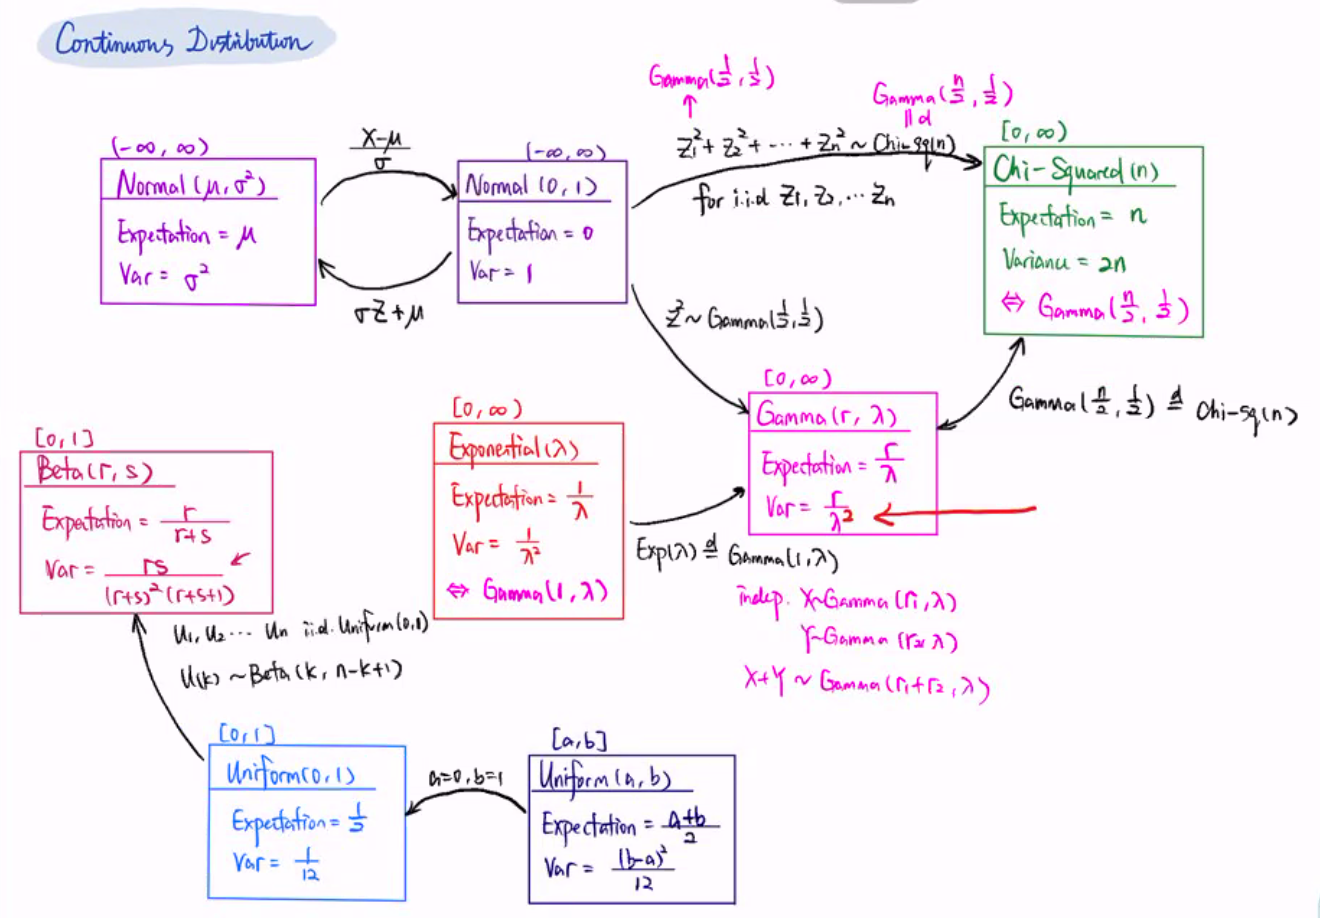 Continuous Distribution
Gamma(1/2, 1/2)
↑
Gamma(n/2, 1/2)
|| d
Z₁² + Z₂² + ··· + Zn² ~ Chi-sq(n)
for i.i.d Z₁, Z₂, ··· Zn
(-∞, ∞)
Normal(μ, σ²)
Expectation = μ
Var = σ²
X-μ/σ
σZ+μ
(-∞, ∞)
Normal(0, 1)
Expectation = 0
Var = 1
[0, ∞)
Chi-Squared(n)
Expectation = n
Variance = 2n
⇔ Gamma(n/2, 1/2)
Z² ~ Gamma(1/2, 1/2)
Gamma(n/2, 1/2) d= Chi-sq(n)
[0, ∞)
Gamma(r, λ)
Expectation = r/λ
Var = r/λ²
[0, ∞)
Exponential(λ)
Expectation = 1/λ
Var = 1/λ²
⇔ Gamma(1, λ)
Exp(λ) d= Gamma(1, λ)
indep. X~Gamma(r₁, λ)
Y~Gamma(r₂, λ)
X+Y ~ Gamma(r₁+r₂, λ)
[0, 1]
Beta(r, s)
Expectation = r/r+s
Var = rs/(r+s)²(r+s+1)
U₁, U₂ ··· Un i.i.d. Uniform(0,1)
U(k) ~ Beta(k, n-k+1)
[0, 1]
Uniform(0, 1)
Expectation = 1/2
Var = 1/12
a=0, b=1
[a, b]
Uniform(a, b)
Expectation = a+b/2
Var = (b-a)²/12